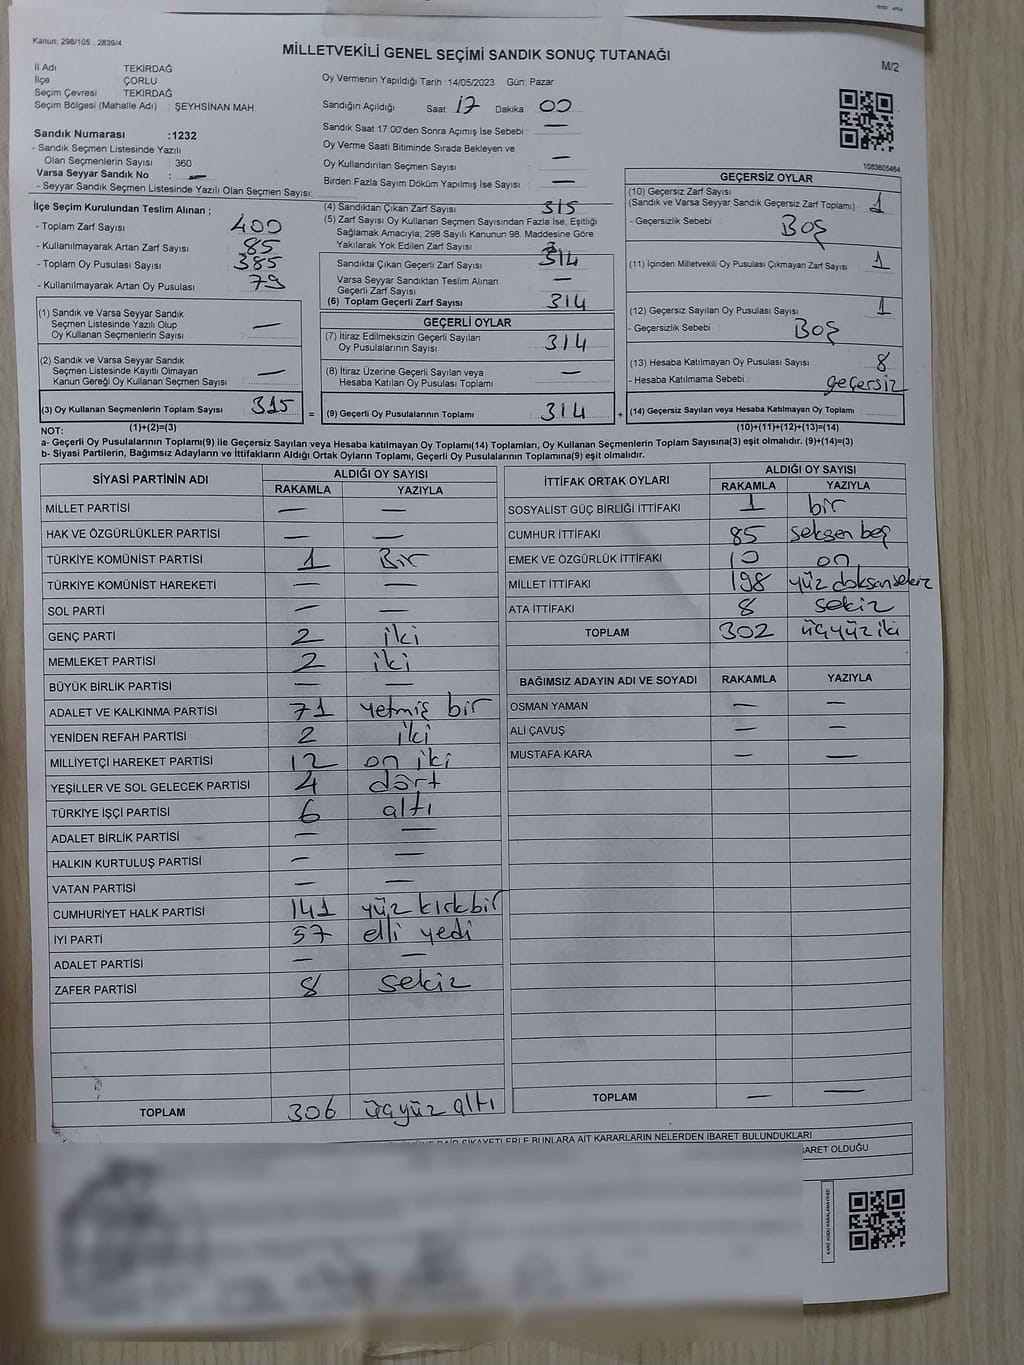 Kanun: 298/105 , 2839/4
MİLLETVEKİLİ GENEL SEÇİMİ SANDIK SONUÇ TUTANAĞI
M/2
İl Adı TEKİRDAĞ
İlçe ÇORLU
Seçim Çevresi : TEKİRDAĞ
Seçim Bölgesi (Mahalle Adı) : ŞEYHSİNAN MAH.
Sandık Numarası :1232
- Sandık Seçmen Listesinde Yazılı
Olan Seçmenlerin Sayısı : 360
Varsa Seyyar Sandık No : —
- Seyyar Sandık Seçmen Listesinde Yazılı Olan Seçmen Sayısı:
Oy Vermenin Yapıldığı Tarih :14/05/2023 Gün: Pazar
Sandığın Açıldığı Saat: 17 Dakika 00
Sandık Saat 17:00'den Sonra Açımış İse Sebebi —
Oy Verme Saati Bitiminde Sırada Bekleyen ve
Oy Kullandırılan Seçmen Sayısı —
Birden Fazla Sayım Döküm Yapılmış İse Sayısı —
1083605484
İlçe Seçim Kurulundan Teslim Alınan ;
- Toplam Zarf Sayısı 400
- Kullanılmayarak Artan Zarf Sayısı 85
- Toplam Oy Pusulası Sayısı 385
- Kullanılmayarak Artan Oy Pusulası 79
(1) Sandık ve Varsa Seyyar Sandık
Seçmen Listesinde Yazılı Olup
Oy Kullanan Seçmenlerin Sayısı : —
(2) Sandık ve Varsa Seyyar Sandık
Seçmen Listesinde Kayıtlı Olmayan
Kanun Gereği Oy Kullanan Seçmen Sayısı —
(3) Oy Kullanan Seçmenlerin Toplam Sayısı 315
(1)+(2)=(3)
(4) Sandıktan Çıkan Zarf Sayısı 315
(5) Zarf Sayısı Oy Kullanan Seçmen Sayısından Fazla İse, Eşitliği
Sağlamak Amacıyla; 298 Sayılı Kanunun 98. Maddesine Göre
Yakılarak Yok Edilen Zarf Sayısı
Sandıkta Çıkan Geçerli Zarf Sayısı 314
Varsa Seyyar Sandıktan Teslim Alınan
Geçerli Zarf Sayısı —
(6) Toplam Geçerli Zarf Sayısı 314
GEÇERLİ OYLAR
(7) İtiraz Edilmeksizin Geçerli Sayılan
Oy Pusulalarının Sayısı 314
(8) İtiraz Üzerine Geçerli Sayılan veya
Hesaba Katılan Oy Pusulası Toplamı —
= (9) Geçerli Oy Pusulalarının Toplamı 314 +
GEÇERSİZ OYLAR
(10) Geçersiz Zarf Sayısı
(Sandık ve Varsa Seyyar Sandık Geçersiz Zarf Toplamı) 1
- Geçersizlik Sebebi Boş
(11) İçinden Milletvekili Oy Pusulası Çıkmayan Zarf Sayısı 1
(12) Geçersiz Sayılan Oy Pusulası Sayısı 1
- Geçersizlik Sebebi : Boş
(13) Hesaba Katılmayan Oy Pusulası Sayısı 8
- Hesaba Katılmama Sebebi : geçersiz
(14) Geçersiz Sayılan veya Hesaba Katılmayan Oy Toplamı
(10)+(11)+(12)+(13)=(14)
NOT:
a- Geçerli Oy Pusulalarının Toplamı(9) ile Geçersiz Sayılan veya Hesaba katılmayan Oy Toplamı(14) Toplamları, Oy Kullanan Seçmenlerin Toplam Sayısına(3) eşit olmalıdır. (9)+(14)=(3)
b- Siyasi Partilerin, Bağımsız Adayların ve İttifakların Aldığı Ortak Oyların Toplamı, Geçerli Oy Pusulalarının Toplamına(9) eşit olmalıdır.
SİYASİ PARTİNİN ADI ALDIĞI OY SAYISI
RAKAMLA YAZIYLA
MİLLET PARTİSİ — —
HAK VE ÖZGÜRLÜKLER PARTİSİ — —
TÜRKİYE KOMÜNİST PARTİSİ 1 Bir
TÜRKİYE KOMÜNİST HAREKETİ — —
SOL PARTİ — —
GENÇ PARTİ 2 iki
MEMLEKET PARTİSİ 2 iki
BÜYÜK BİRLİK PARTİSİ — —
ADALET VE KALKINMA PARTİSİ 71 yetmiş bir
YENİDEN REFAH PARTİSİ 2 iki
MİLLİYETÇİ HAREKET PARTİSİ 12 on iki
YEŞİLLER VE SOL GELECEK PARTİSİ 4 dört
TÜRKİYE İŞÇİ PARTİSİ 6 altı
ADALET BİRLİK PARTİSİ — —
HALKIN KURTULUŞ PARTİSİ — —
VATAN PARTİSİ — —
CUMHURİYET HALK PARTİSİ 141 yüz kırkbir
İYİ PARTİ 57 elli yedi
ADALET PARTİSİ — —
ZAFER PARTİSİ 8 sekiz
TOPLAM 306 üçyüz altı
İTTİFAK ORTAK OYLARI ALDIĞI OY SAYISI
RAKAMLA YAZIYLA
SOSYALİST GÜÇ BİRLİĞİ İTTİFAKI 1 bir
CUMHUR İTTİFAKI 85 seksen beş
EMEK VE ÖZGÜRLÜK İTTİFAKI 10 on
MİLLET İTTİFAKI 198 yüz doksansekiz
ATA İTTİFAKI 8 sekiz
TOPLAM 302 üçyüz iki
BAĞIMSIZ ADAYIN ADI VE SOYADI RAKAMLA YAZIYLA
OSMAN YAMAN — —
ALİ ÇAVUŞ — —
MUSTAFA KARA — —
TOPLAM — —
DAİR ŞİKAYETLERLE BUNLARA AİT KARARLARIN NELERDEN İBARET BULUNDUKLARI
İBARET OLDUĞU